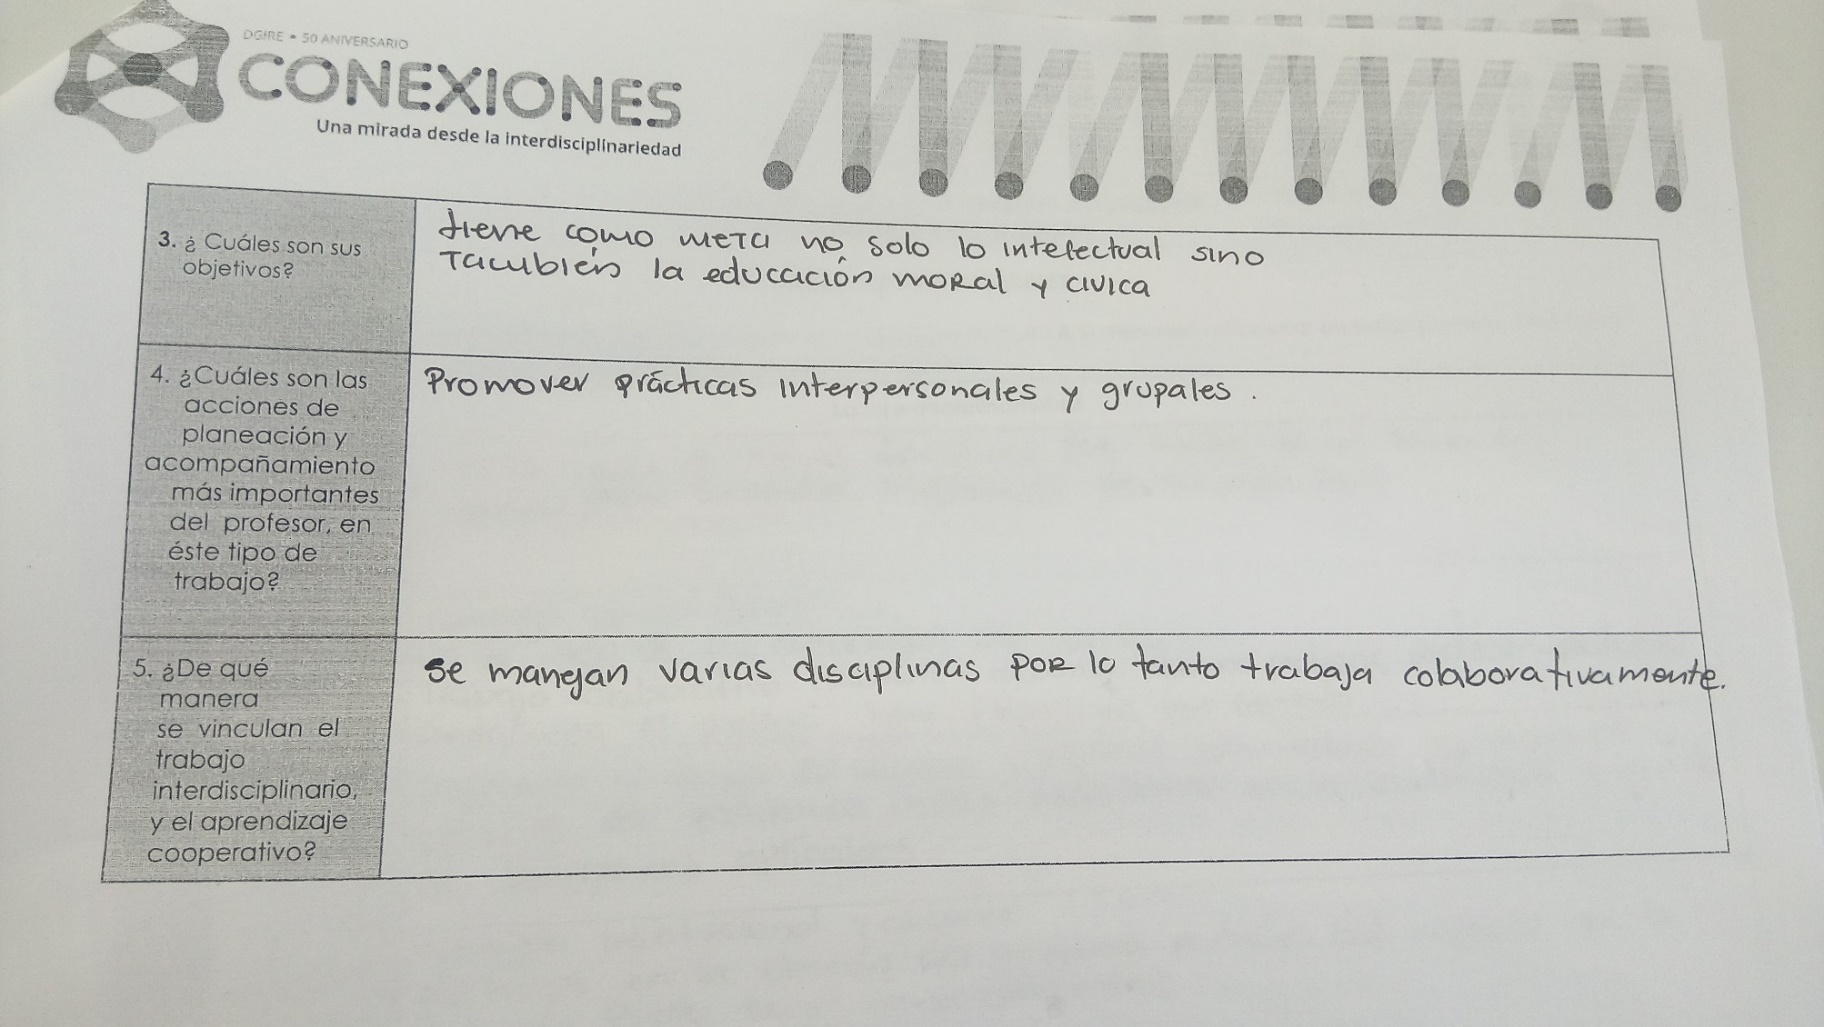 DGIRE • 50 ANIVERSARIO
CONEXIONES
Una mirada desde la interdisciplinariedad
3. ¿ Cuáles son sus
objetivos?
tiene como meta no solo lo intelectual sino
también la educación moral y civica
4. ¿Cuáles son las
acciones de
planeación y
acompañamiento
más importantes
del profesor, en
éste tipo de
trabajo?
Promover prácticas interpersonales y grupales.
5. ¿De qué
manera
se vinculan el
trabajo
interdisciplinario,
y el aprendizaje
cooperativo?
se manejan varias disciplinas por lo tanto trabaja colaborativamente.